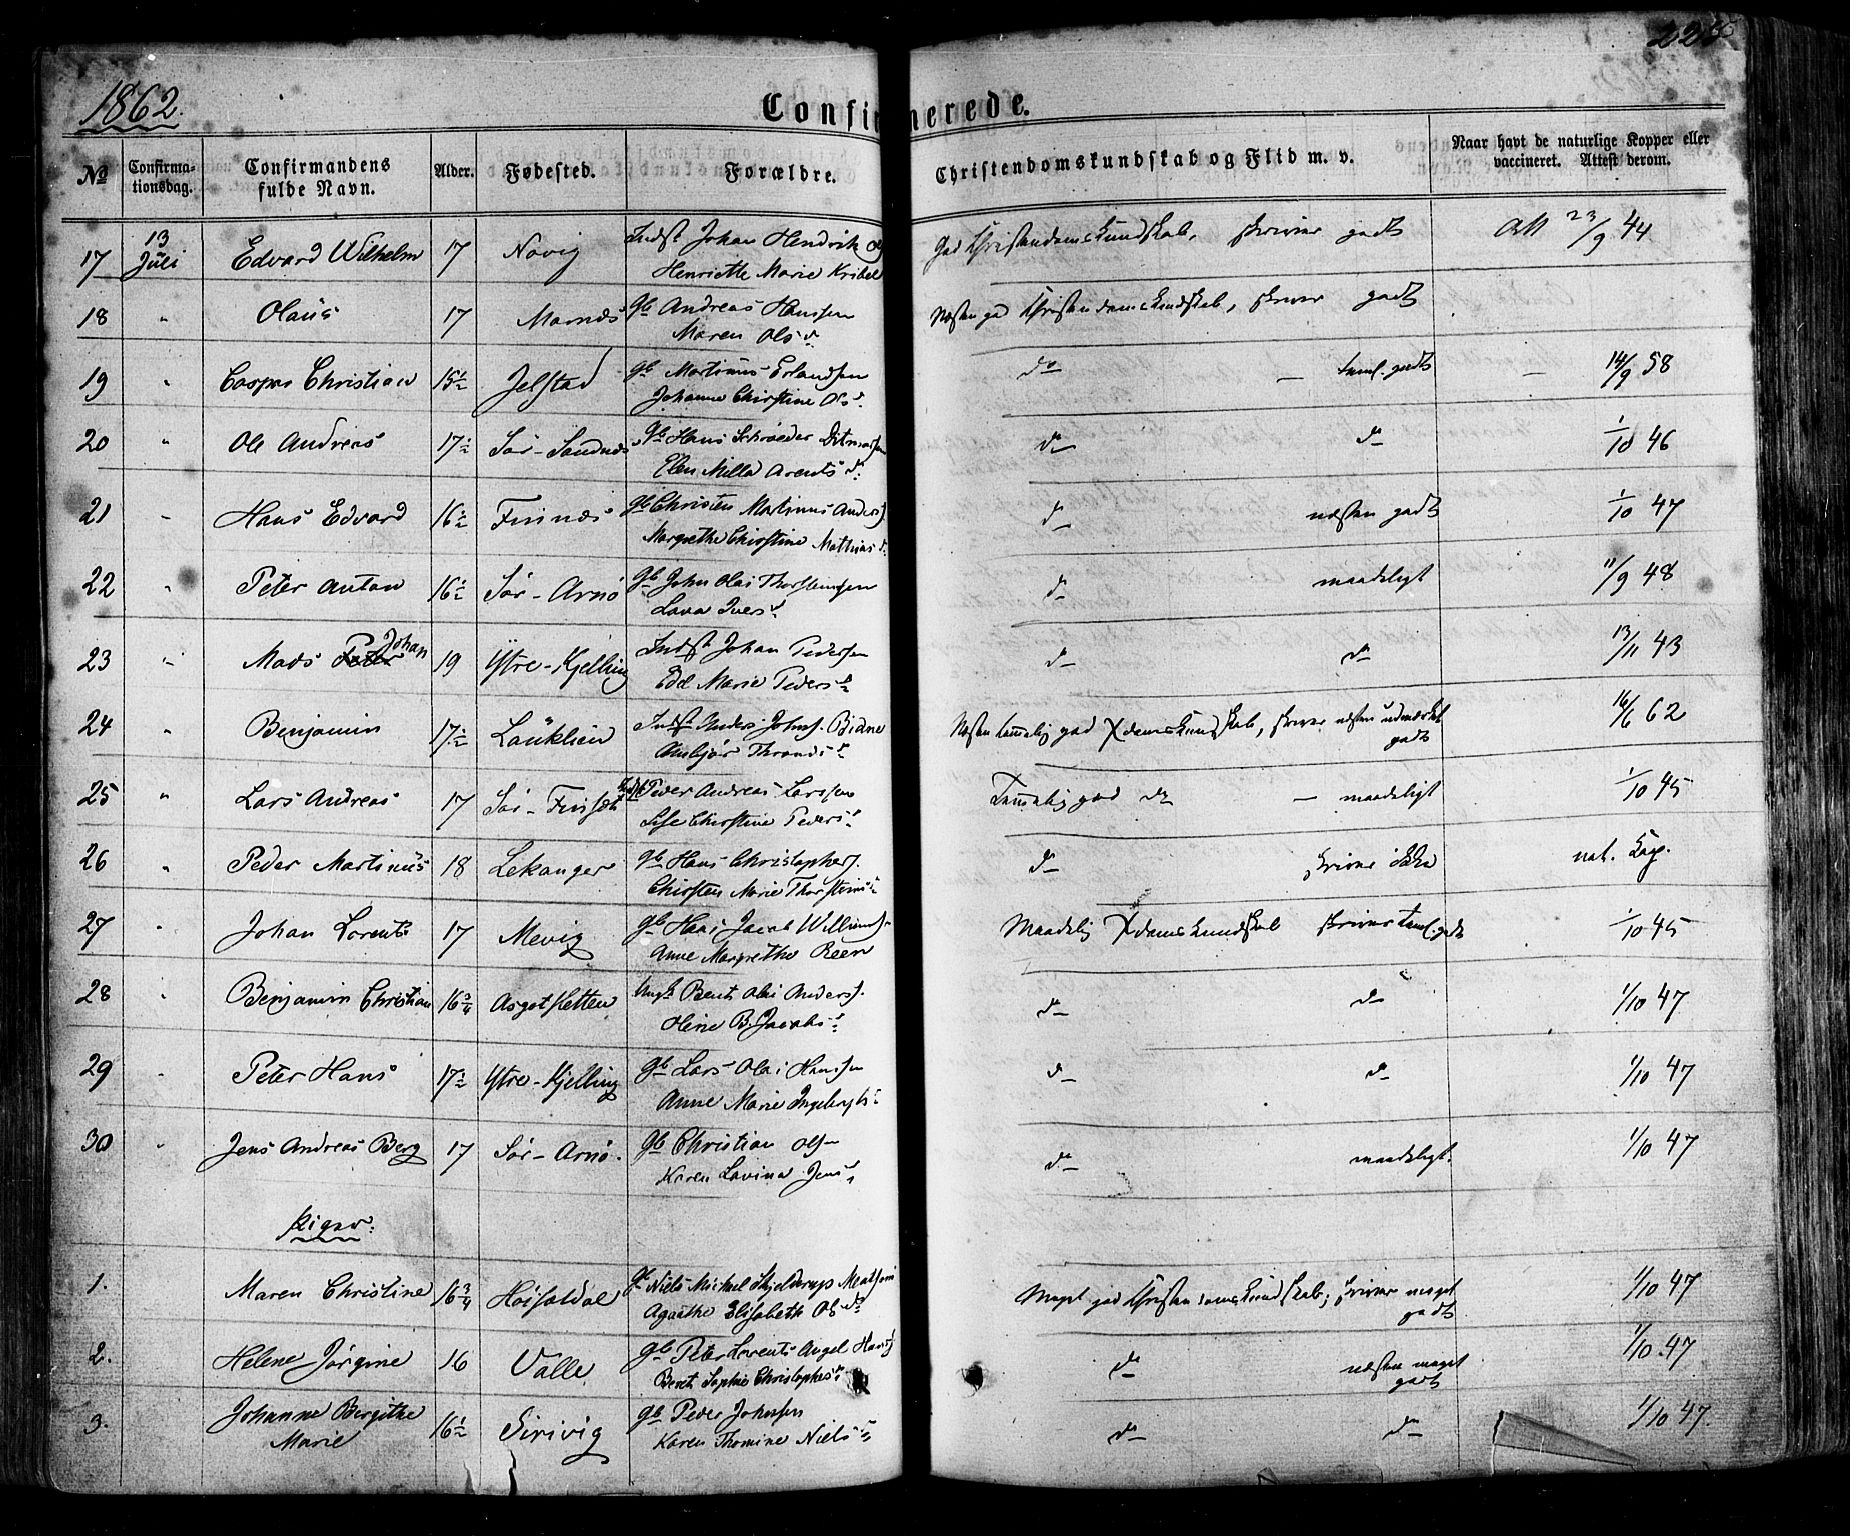 1862.
Confirmerede.
No
Confirma-
tionsdag.
Confirmandens
fulde Navn.
Alder.
Fødested.
Forældre.
Christendomskundskab og Flid m. v.
Naar havt de naturlige Kopper eller
vaccineret. Attest derom.
17 13 Juli Edvard Wilhelm 17 Novig Indst Johan Hendrik
Henriette Marie Kribel
God Christendomskundskab, skriver godt Att 23/9 44
18 " Olaüs 17 Mornæs Gb Andreas Hanssen
Maren Olsd.
Næsten god Christendomskundskab, skriver godt
19 " Caspar Christian 15½ Jelstad Gb Martinus Erlandsen
Johanne Christine Olsd.
do — taml. godt — 14/9 58
20 " Ole Andreas 17½ Sør-Sandnes Gb Hans Schrøder Ditmarsen
Elen Milla Arentsd.
do do 1/10 46
21 " Hans Edvard 16½ Finnæs Gb Christen Martinus Anders.
Margrethe Christine Mathiasd.
do næsten godt 1/10 47
22 " Peter Anton 16½ Sør-Arnø Gb John Olai Thorstensen
Lava Iversd.
do maadeligt 11/9 48
23 " Mads Peter Johan 19 Ytre-Kjelling Indst Johan Pedersen
Edel Marie Pedersd.
do do 13/11 43
24 " Benjamin 17½ Laüklien Indst Anders Johns. Bidne
Anbjør Throndsd.
Næsten tammelig god Xdomskundskab, skriver næsten udmærket
godt
16/6 62
25 " Lars Andreas 17 Sør-Finset Indst Peder Andreas Larssen
Sise Christine Pedersd.
Tammelig god do — maadeligt 1/10 45
26 " Peder Martinüs 18 Lekanger Gb Hans Christophers.
Chirsten Marie Thorsteinsd.
do skriver ikke nat. Kop.
27 " Johan Lorents 17 Mevig Gb Hans Jacob Willums.
Anne Margrethe Reen
Maadelig Xdomskundskab skriver taml. godt 1/10 45
28 " Benjamin Christian 16¾ Asgotsletten Ungk. Bent Olai Anders.
Oline B. Jacobsd.
do do 1/10 47
29 " Peter Hans 17½ Ytre-Kjelling Gb Lars Olai Hanssen
Anne Marie Ingebrigtsd.
do do 1/10 47
30 " Jens Andreas Berg 17 Sør-Arnø. Gb Christian Ols.
Karen Lovina Jensd.
do maadeligt. 1/10 47
Piger.
1. Maren Christine 16¾ Høisoldal Gb Niels Michael Skjelderup
Agaathe Elisabeth Olsd.
Meget god Christendomskundskab, skriver meget
godt
1/10 47
2. Helene Jørgine 16 Valle Gb Peter Lorents Angel Hans.
Beret Sophie Christophersd.
do næsten meget
godt
1/10 47
3. Johanne Bergithe
Marie 16½ Sirivig Gb Peder Johnssen
Karen Thomine Nielsd.
do do 1/10 47.